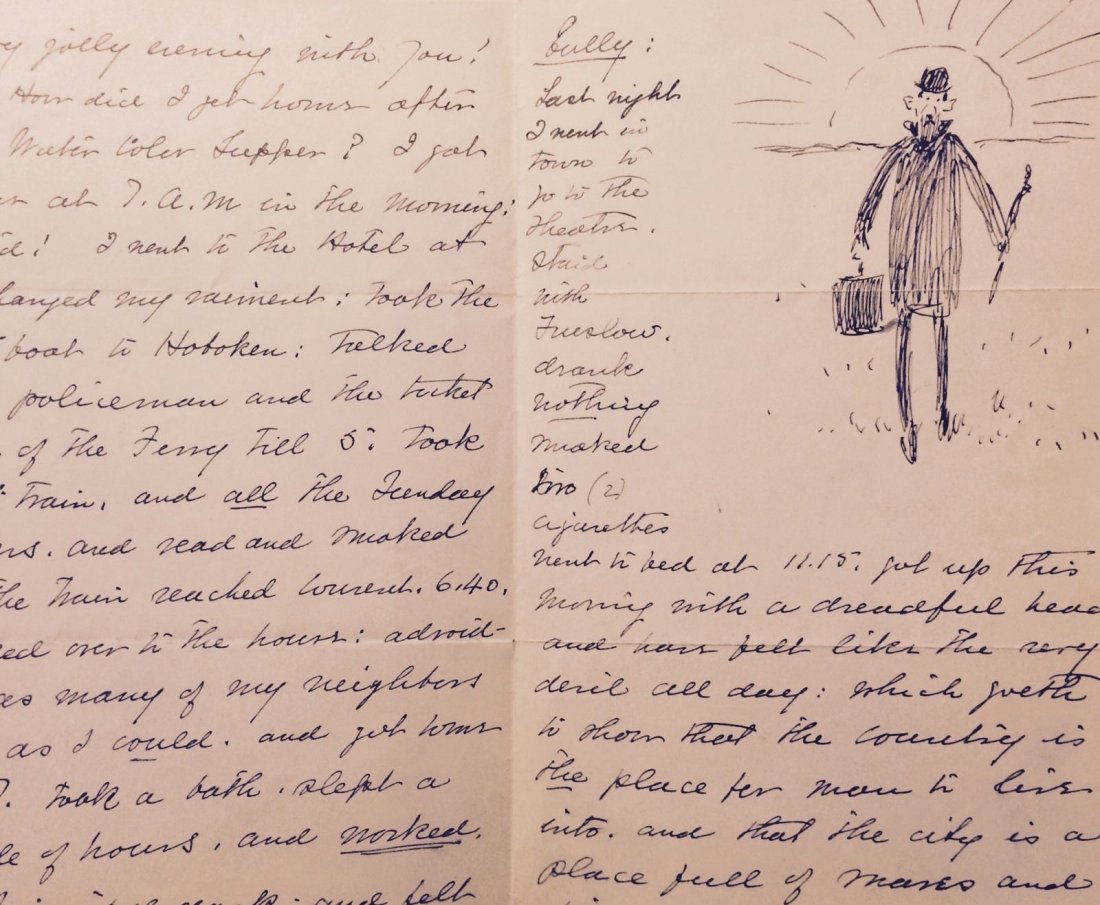 jolly evening with you!
How did I get home after
Water Color Supper? I got
at 7. A.M in the morning:
I went to the Hotel at
changed my raiment: took the
boat to Hoboken: Talked
policeman and the ticket
of the Ferry till 5: Took
Train, and all the Sunday
and read and smoked
the Train reached Convent. 6.40.
over to the house: avoid-
many of my neighbors
as I could. and got home
7. Took a bath. slept a
of hours. and worked.
and felt
Bully:
Last night
I went in
town to
go to the
Theatre.
Staid
with
drank
nothing
smoked
two (2)
cigarettes
went to bed at 11.15. got up this
morning with a dreadful head
and have felt like the very
devil all day: which goeth
to show that the country is
the place for man to live
into. and that the city is a
place full of snares and